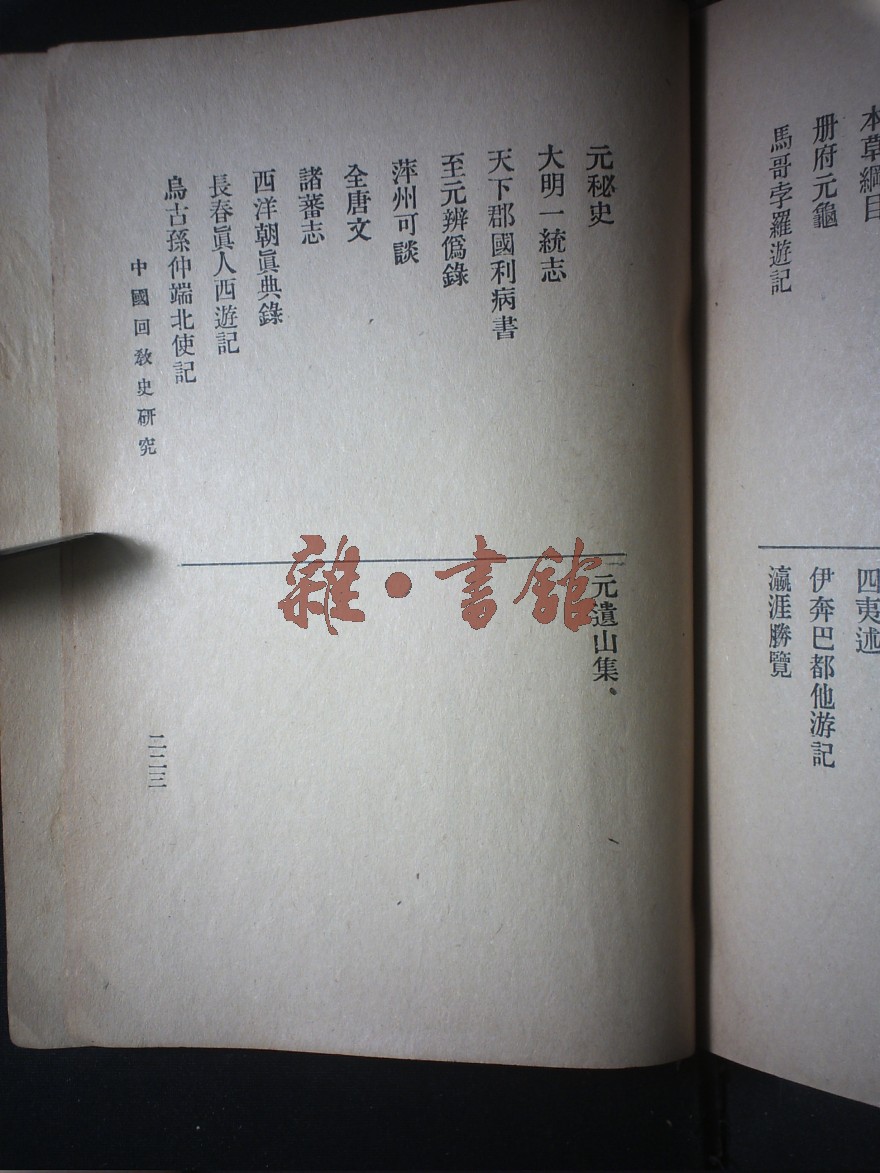 本草綱目
册府元龜
馬哥孛羅遊記
四夷述
伊奔巴都他游記
瀛涯勝覽
元秘史
大明一統志
天下郡國利病書
至元辨僞錄
萍州可談
全唐文
諸蕃志
西洋朝眞典錄
長春眞人西遊記
烏古孫仲端北使記
元遺山集、
中國回敎史硏究
二二三
雜·書舘